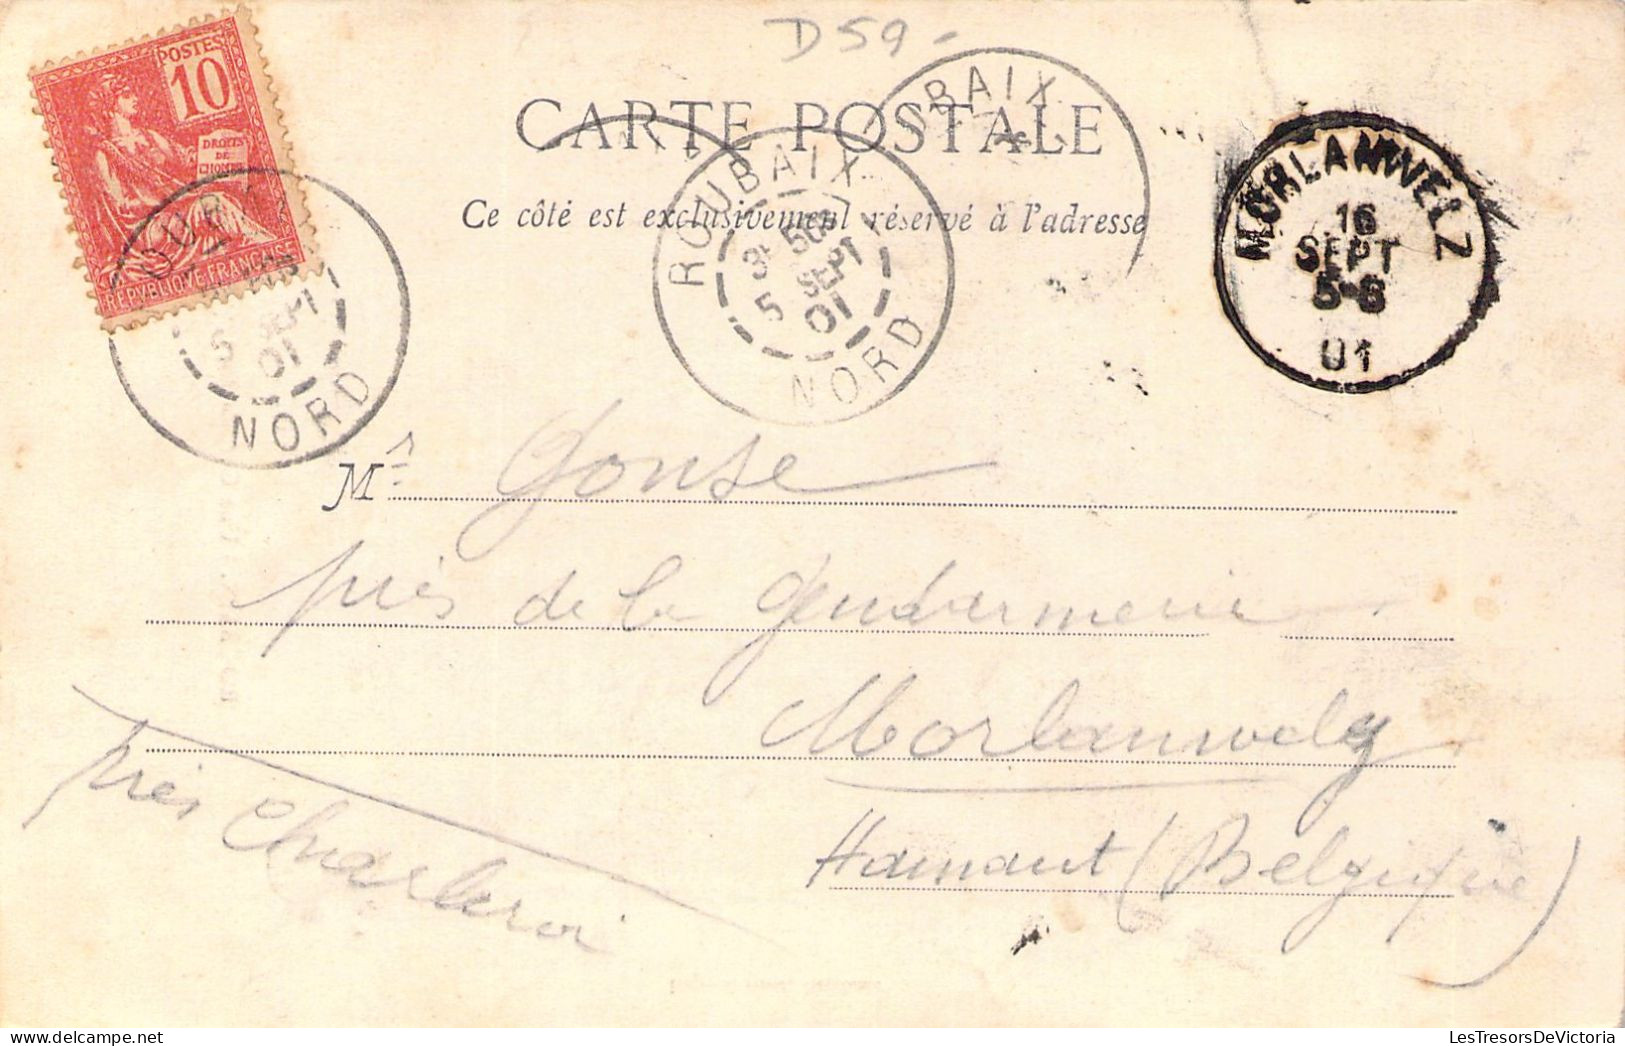 D59-
POSTES
10
DROITS
DE
L'HOMME
RÉPUBLIQUE FRANÇAISE
5 SEPT
01
NORD
CARTE POSTALE
Ce côté est exclusivement réservé à l'adresse
ROUBAIX
5 SEPT
01
NORD
BAIX
MORLANWELZ
16
SEPT
5-6
01
Mr Gonse
près de la gendarmerie
Morlanwelz
près Charleroi
Hainaut (Belgique)
LesTresorsDeVictoria.com